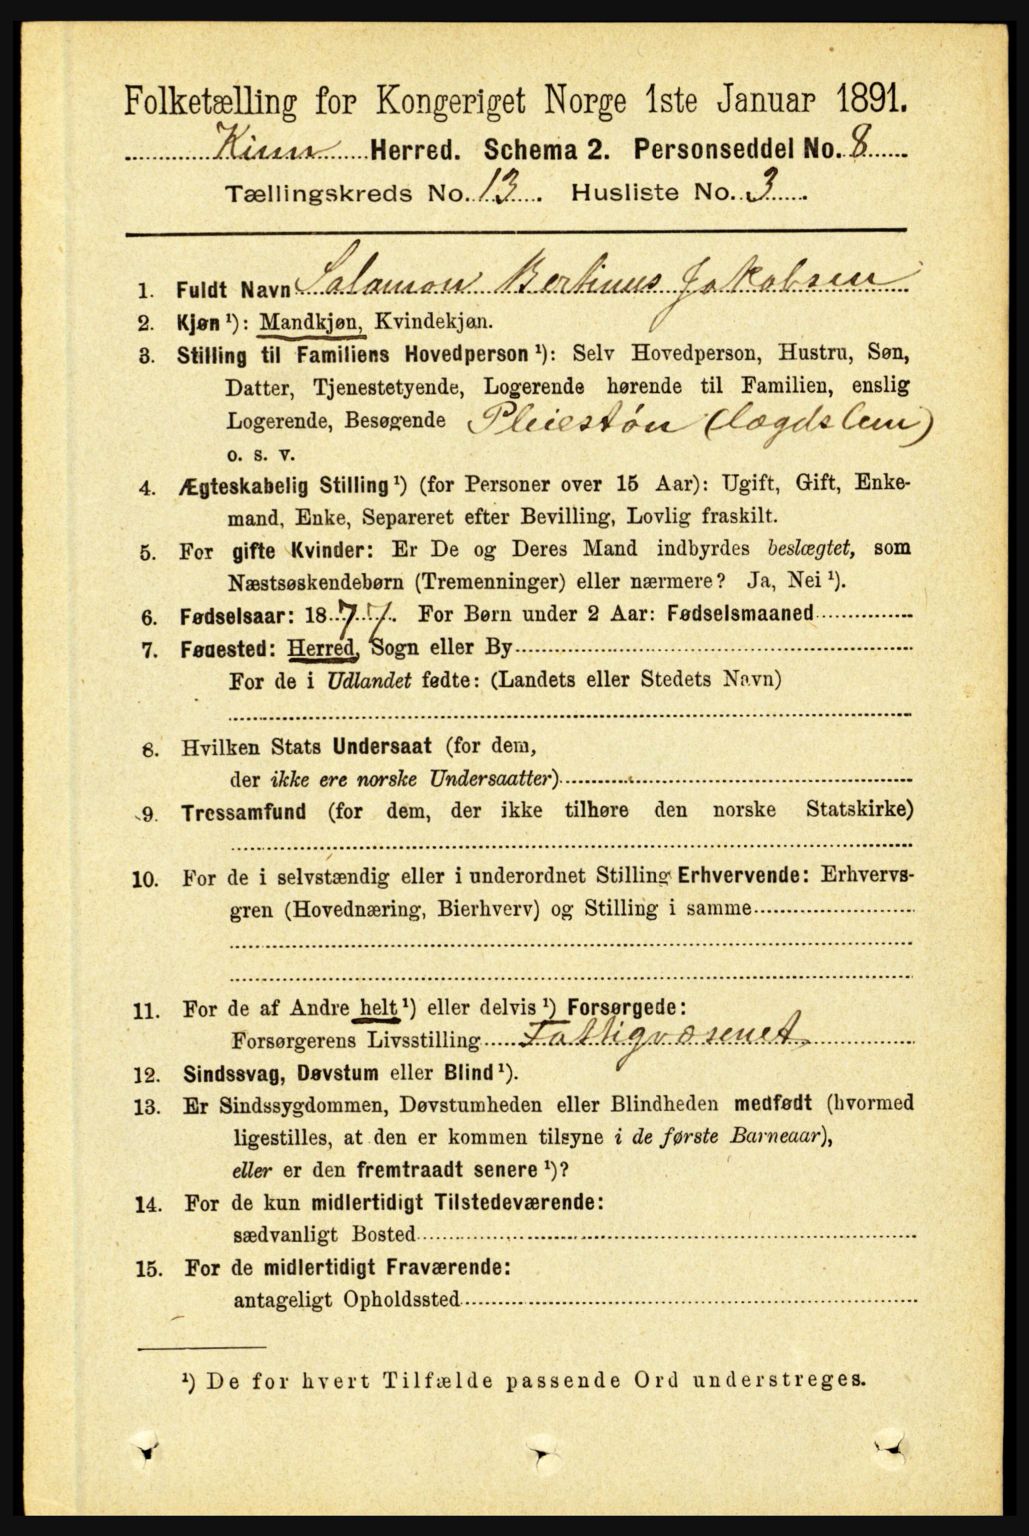 Folketælling for Kongeriget Norge 1ste Januar 1891.
Kinn Herred. Schema 2. Personseddel No. 8
Tællingskreds No. 13. Husliste No. 3.
1. Fuldt Navn Salamon Bertinus Jakobsen
2. Kjøn ¹): Mandkjøn, Kvindekjøn.
3. Stilling til Familiens Hovedperson ¹): Selv Hovedperson, Hustru, Søn,
Datter, Tjenestetyende, Logerende hørende til Familien, enslig
Logerende, Besøgende Pleiestøn (lægdslem)
o. s. v.
4. Ægteskabelig Stilling ¹) (for Personer over 15 Aar): Ugift, Gift, Enke-
mand, Enke, Separeret efter Bevilling, Lovlig fraskilt.
5. For gifte Kvinder: Er De og Deres Mand indbyrdes beslægtet, som
Næstsøskendebørn (Tremenninger) eller nærmere? Ja, Nei ¹).
6. Fødselsaar: 1877. For Børn under 2 Aar: Fødselsmaaned
7. Fødested: Herred, Sogn eller By
For de i Udlandet fødte: (Landets eller Stedets Navn)
8. Hvilken Stats Undersaat (for dem,
der ikke ere norske Undersaatter)
9. Trossamfund (for dem, der ikke tilhøre den norske Statskirke)
10. For de i selvstændig eller i underordnet Stilling Erhvervende: Erhvervs-
gren (Hovednæring, Bierhverv) og Stilling i samme
11. For de af Andre helt ¹) eller delvis ¹) Forsørgede:
Forsørgerens Livsstilling Fattigvæsenet.
12. Sindssvag, Døvstum eller Blind ¹).
13. Er Sindssygdommen, Døvstumheden eller Blindheden medfødt (hvormed
ligestilles, at den er kommen tilsyne i de første Barneaar),
eller er den fremtraadt senere ¹)?
14. For de kun midlertidigt Tilstedeværende:
sædvanligt Bosted
15. For de midlertidigt Fraværende:
antageligt Opholdssted
¹) De for hvert Tilfælde passende Ord understreges.